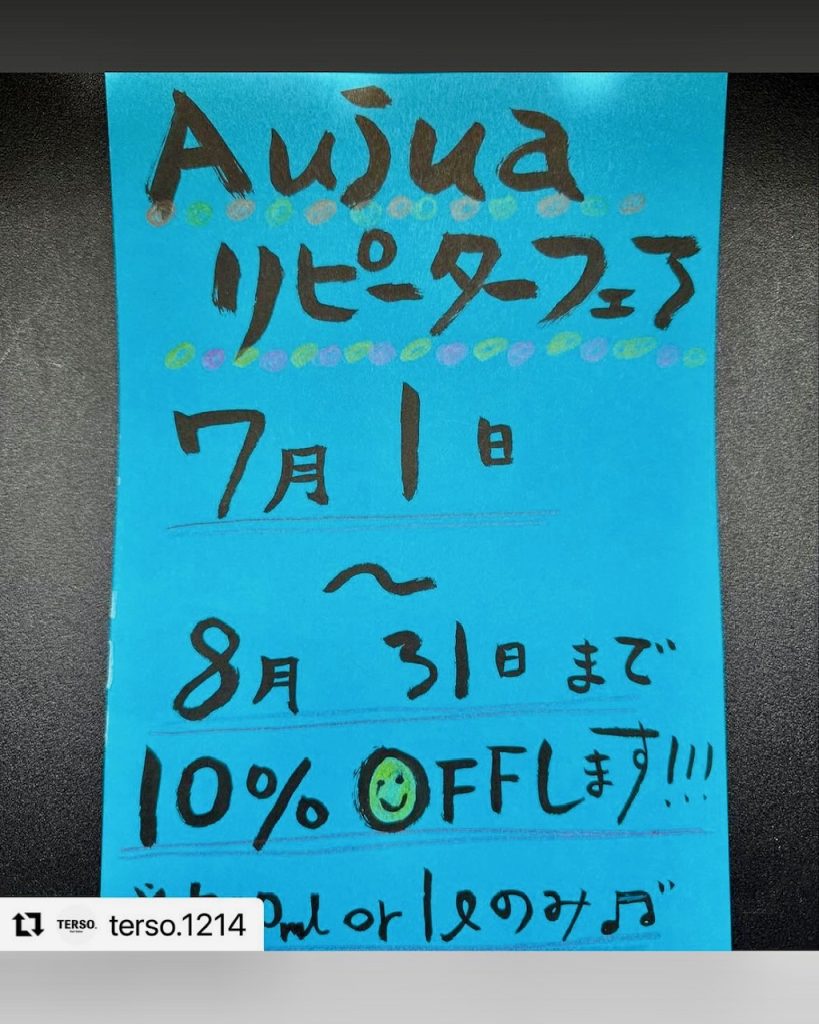 Aujua
リピーターフェア
7月1日
〜
8月 31日 まで
10% OFFします!!!
ml or 1ℓのみ♫
TERSO.
terso.1214